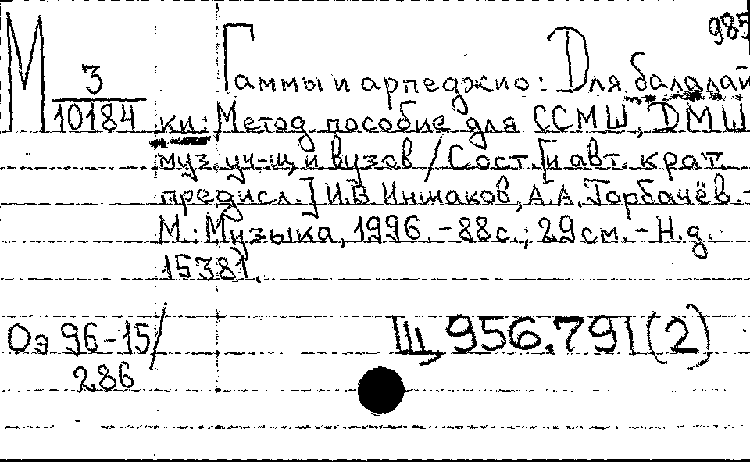 985
М 3
10184
Гаммы и арпеджио: Для балалай
ки: Метод. пособие для ССМШ, ДМШ
муз. уч-щ, и вузов / Сост. [и авт. крат.
предисл.] И.В. Иншаков, А.А. Горбачёв. -
М.: Музыка, 1996. - 88 с.; 29 см. - Н.д.
15381.
Оэ 96-15/
286
Щ 956.791(2)